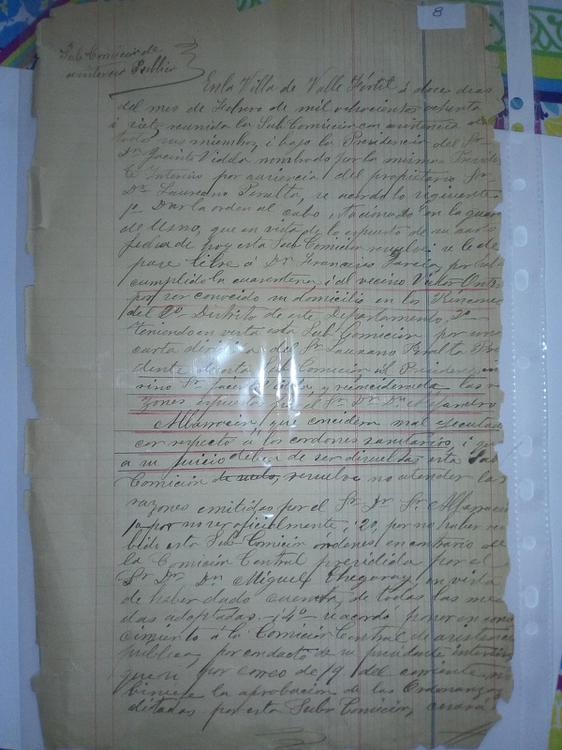 8
Sub Comision de
asistencia Publica
En la Villa de Valle Fértil á doce dias
del mes de Febrero de mil ochocientos ochenta
i siete reunida la Sub Comicion con asistencia de
todos sus miembros i bajo la Presidencia del Sr
Dn Jacinto Videla nombrado por la misma
Interino por ausencia del propietario Sr
Dn Laureano Peralta, se acordó lo siguiente
1º Dar la orden al cabo estacionado con la guar
de Usno, que en vista de lo espuesto de su carta
fecha de hoy esta Sub Comicion resuelve se le de
pase libre á Dn Francisco por haber
cumplido la cuarentena, i al vecino
por ser conocido su domicilio en los Rincones
del 2º Distrito de este Departamento. 2º
teniendo en vista esta Sub Comicion por una
carta del Sr Laureano Peralta Presi
dente Sub Comicion al Presidente
rino Sr Jacinto Videla y las ra
zones por el Sr Dr Dn
Albarracin, que concidera mal
con respecto á los cordones sanitarios, i que
a su juicio deben de ser disueltos, esta Sub
Comicion resuelve no atender las
razones emitidas por el Sr Dr Sr Albarracin
1º por no ser oficialmente, i 2º, por no haber re
bido esta Sub Comicion órdenes en contrario de
la Comicion Central presidida por el
Sr Dr Dn Miguel Echegaray, en vista
de haber dado cuenta, de todas las me
das adoptadas. i 4º se acordó poner en cono
cimiento á la Comicion Central de asistencia
publica, por conducto de su presidente interino
que por correo de 19 del corriente
la aprobacion de las Ordenanzas
dictadas por esta Sub Comicion,